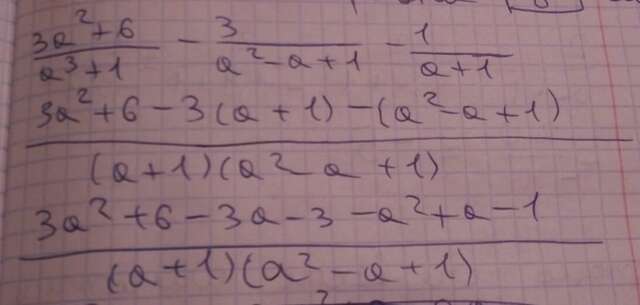 (3a²+6)/(a³+1) − 3/(a²−a+1) − 1/(a+1)
3a²+6−3(a+1)−(a²−a+1)
(a+1)(a² a+1)
3a²+6−3a−3−a²+a−1
(a+1)(a²−a+1)